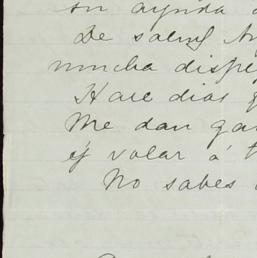 su ayuda
De salud
mucha dispe
Hace dias q
Me dan gan
y volar á t
No sabes